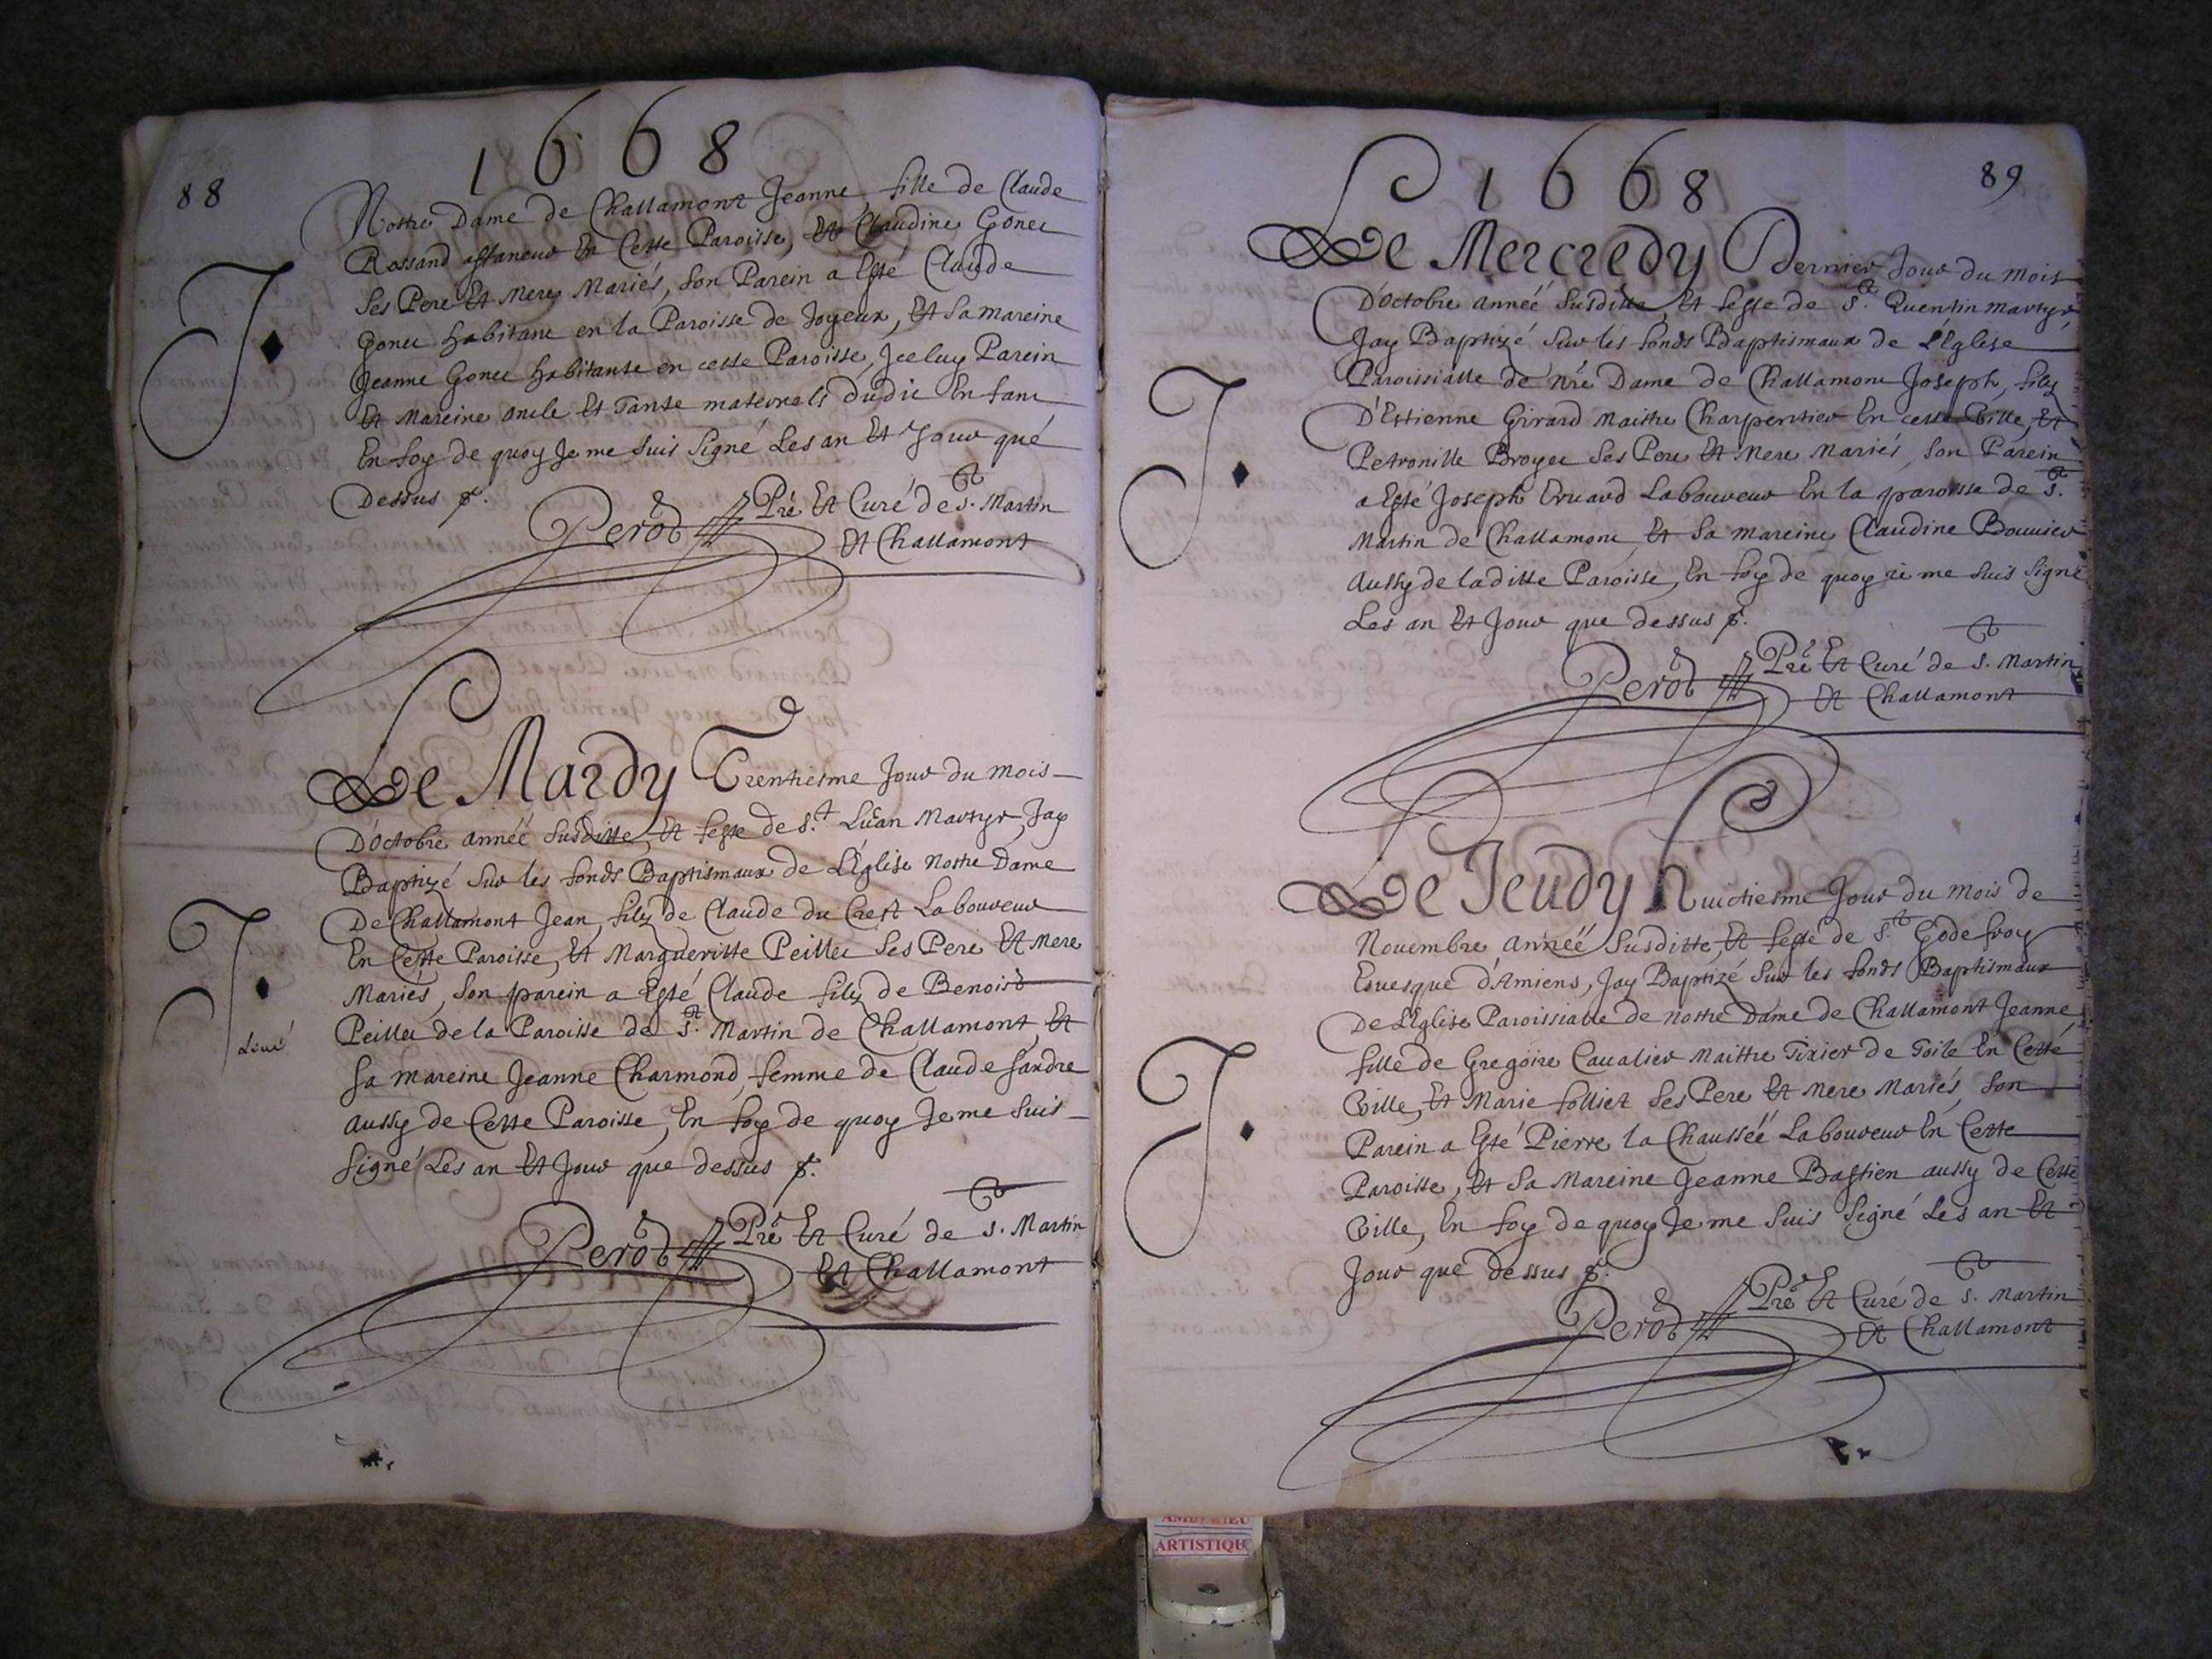 88
1668
Nostre Dame de Challamont Jeanne, fille de Claude
Rossand affaneur En Cette Paroisse, Et Claudine Gonet
Ses Pere Et Mere Mariés, Son Parein à Esté Claude
Gonet habitant en la Paroisse de Joyeux, Et Sa mareine
Jeanne Gonet habitante en cette Paroisse, Jceluy Parein
Et Mareine oncle Et Tante maternels dudit Enfant
En foy de quoy Je me suis signé Les an Et Jour que
Dessus
J
Perod Pre Et Curé de S.t Martin
Et Challamont
Le Mardy Trentiesme Jour du mois
D'Octobre année susditte, Et feste de S.t Lucan Martyr, Jay
Baptizé sur les fonds Baptismaux de L'Eglise Nostre Dame
De Challamont Jean, filz de Claude du Crest Laboureur
En Cette Paroisse, Et Margueritte Peillet Ses Pere Et Mere
Mariés, Son parein a Esté Claude filz de Benoist
Peillet de la Paroisse de S.t Martin de Challamont, Et
Sa mareine Jeanne Charmond femme de Claude fandre
aussy de Cette Paroisse, En foy de quoy Je me suis
signé Les an Et Jour que dessus
J
Perod Pre Et Curé de S.t Martin
Et Challamont
1668
89
Le Mercredy Dernier Jour du mois
D'Octobre année susditte, Et feste de S.t Quentin martyr
Jay Baptizé sur les fonds Baptismaux de L'Eglise
Paroissialle de nre Dame de Challamont Joseph, filz
D'Estienne Girard Maitre Charpentier En cette Ville, Et
Petronille Broyet Ses Pere Et Mere Mariés, Son Parein
a Esté Joseph Laboureur En la paroisse de S.t
Martin de Challamont, Et Sa mareine Claudine Bouvier
Aussy de laditte Paroisse, En foy de quoy je me suis signé
Les an Et Jour que dessus
J
Perod Pre Et Curé de S.t Martin
Et Challamont
Le Jeudy huictiesme Jour du Mois de
Novembre année susditte, Et feste de S.t Godefroy
Evesque d'Amiens, Jay Baptizé sur les fonds Baptismaux
De L'Eglise Paroissialle de Nostre Dame de Challamont Jeanne
fille de Gregoire Cavalier Maittre Tixier de Toile En Cette
Ville, Et Marie folliet Ses Pere Et Mere Mariés, Son
Parein a Esté Pierre la Chaussée Laboureur En Cette
Paroisse, Et Sa Mareine Jeanne Bastien aussy de Cette
Ville, En foy de quoy Je me suis signé Les an Et
Jour que dessus
J
Perod Pre Et Curé de S.t Martin
Et Challamont
ARTISTIQU